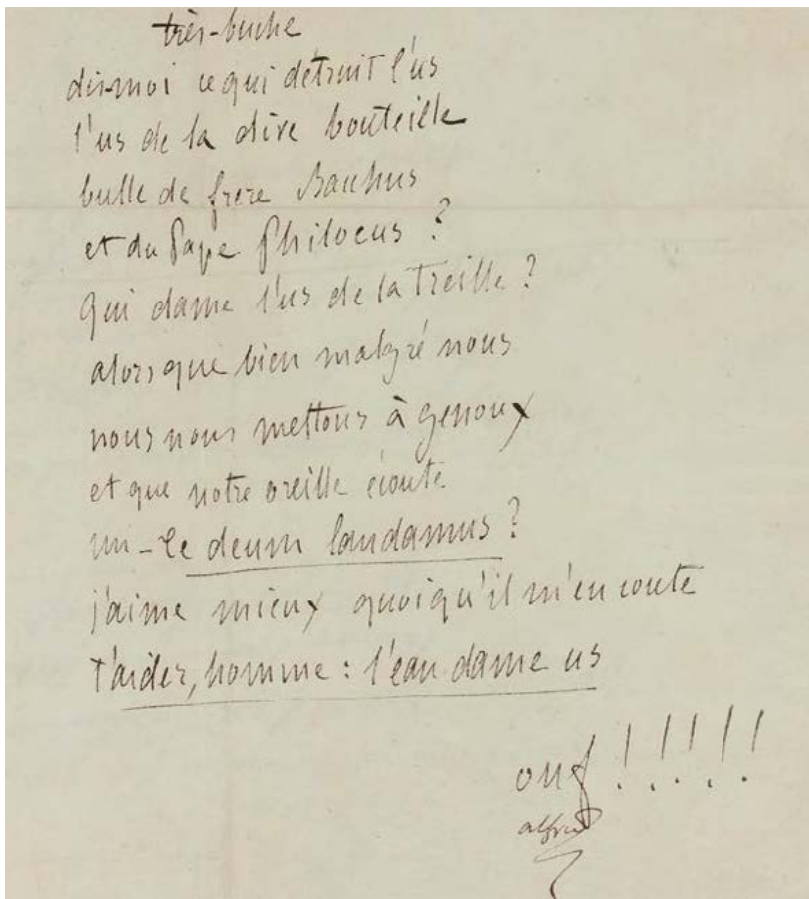 très-buche
dis-moi ce qui détruit l'us
l'us de la dive bouteille
bulle de frere Bacchus
et du Pape Philocus ?
qui dame l'us de la treille ?
alors que bien malgré nous
nous nous mettons à genoux
et que notre oreille écoute
un - te deum laudamus ?
j'aime mieux quoiqu'il m'en coute
t'aider, homme : l'eau dame us
ouf !!!!!
alfred